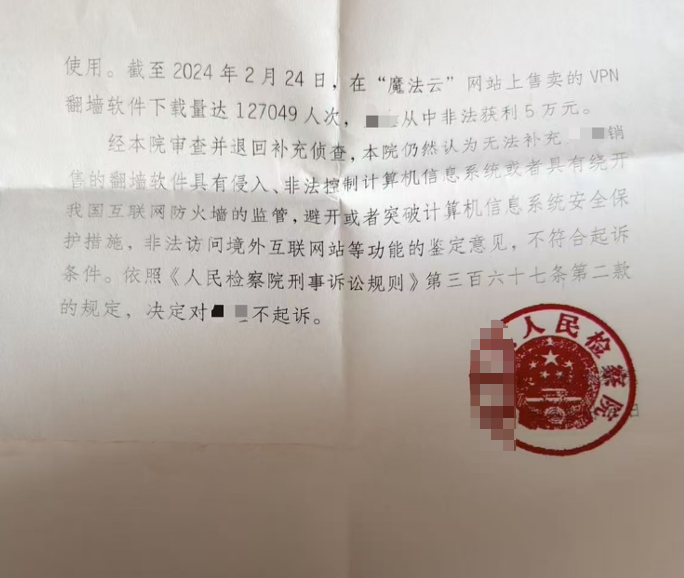 使用。截至2024年2月24日，在“魔法云”网站上售卖的VPN
翻墙软件下载量达127049人次，从中非法获利5万元。
经本院审查并退回补充侦查，本院仍然认为无法补充销
售的翻墙软件具有侵入、非法控制计算机信息系统或者具有绕开
我国互联网防火墙的监管，避开或者突破计算机信息系统安全保
护措施，非法访问境外互联网站等功能的鉴定意见，不符合起诉
条件。依照《人民检察院刑事诉讼规则》第三百六十七条第二款
的规定，决定对不起诉。
人民检察院
日